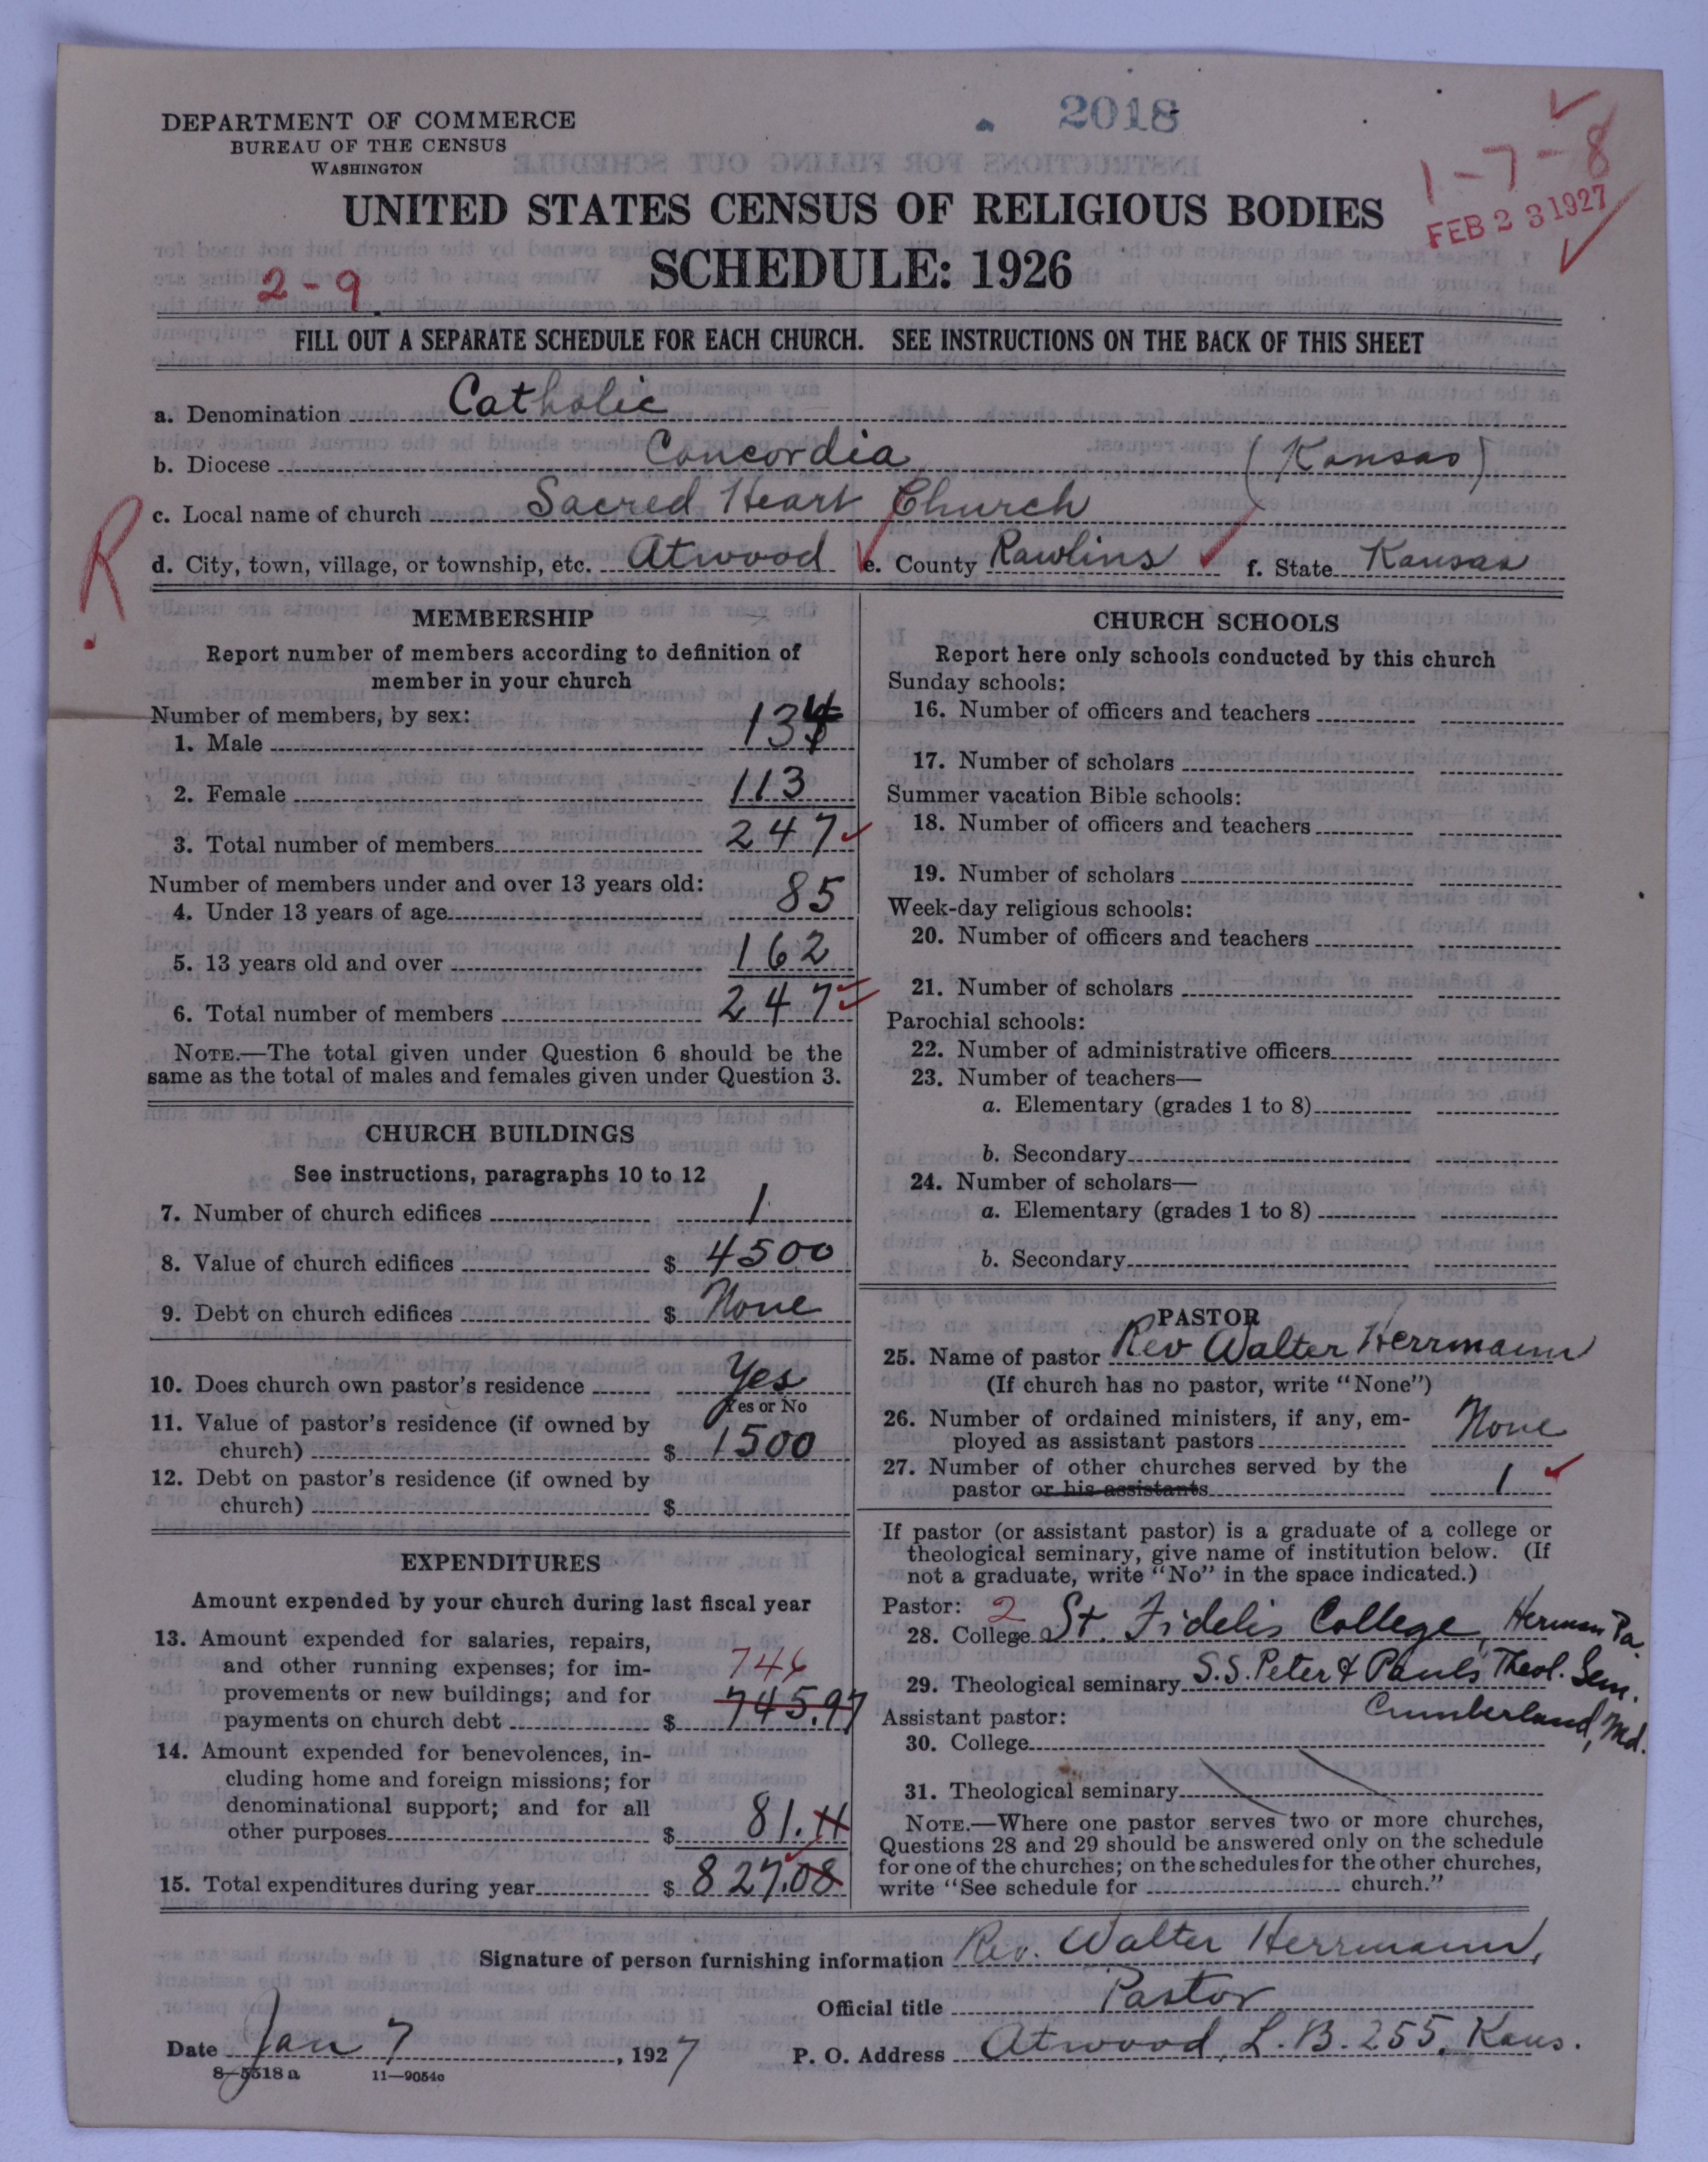 DEPARTMENT OF COMMERCE
BUREAU OF THE CENSUS
WASHINGTON
2018
1-7-8
FEB 23 1927
UNITED STATES CENSUS OF RELIGIOUS BODIES
SCHEDULE: 1926
2-9
FILL OUT A SEPARATE SCHEDULE FOR EACH CHURCH. SEE INSTRUCTIONS ON THE BACK OF THIS SHEET
a. Denomination Catholic
b. Diocese Concordia (Kansas)
R
c. Local name of church Sacred Heart Church
d. City, town, village, or township, etc. Atwood e. County Rawlins f. State Kansas
MEMBERSHIP
Report number of members according to definition of
member in your church
Number of members, by sex:
1. Male 134
2. Female 113
3. Total number of members 247
Number of members under and over 13 years old:
4. Under 13 years of age 85
5. 13 years old and over 162
6. Total number of members 247
NOTE.—The total given under Question 6 should be the
same as the total of males and females given under Question 3.
CHURCH BUILDINGS
See instructions, paragraphs 10 to 12
7. Number of church edifices 1
8. Value of church edifices $ 4500
9. Debt on church edifices $ None
10. Does church own pastor's residence Yes
Yes or No
11. Value of pastor's residence (if owned by
church) $ 1500
12. Debt on pastor's residence (if owned by
church) $
EXPENDITURES
Amount expended by your church during last fiscal year
13. Amount expended for salaries, repairs,
and other running expenses; for im-
746
provements or new buildings; and for
payments on church debt $ 745.97
14. Amount expended for benevolences, in-
cluding home and foreign missions; for
denominational support; and for all
other purposes $ 81.11
15. Total expenditures during year $ 827.08
CHURCH SCHOOLS
Report here only schools conducted by this church
Sunday schools:
16. Number of officers and teachers
17. Number of scholars
Summer vacation Bible schools:
18. Number of officers and teachers
19. Number of scholars
Week-day religious schools:
20. Number of officers and teachers
21. Number of scholars
Parochial schools:
22. Number of administrative officers
23. Number of teachers—
a. Elementary (grades 1 to 8)
b. Secondary
24. Number of scholars—
a. Elementary (grades 1 to 8)
b. Secondary
PASTOR
25. Name of pastor Rev Walter Herrmann
(If church has no pastor, write "None")
26. Number of ordained ministers, if any, em-
ployed as assistant pastors None
27. Number of other churches served by the
pastor or his assistants 1
If pastor (or assistant pastor) is a graduate of a college or
theological seminary, give name of institution below. (If
not a graduate, write "No" in the space indicated.)
Pastor: 2
28. College St. Fidelis College, Herman Pa.
29. Theological seminary S.S. Peter & Pauls Theol. Sem.
Cumberland, Md.
Assistant pastor:
30. College
31. Theological seminary
NOTE.—Where one pastor serves two or more churches,
Questions 28 and 29 should be answered only on the schedule
for one of the churches; on the schedules for the other churches,
write "See schedule for church."
Signature of person furnishing information Rev. Walter Herrmann,
Official title Pastor
Date Jan 7, 1927
P. O. Address Atwood, L.B. 255, Kans.
8-5518 a 11—9054c